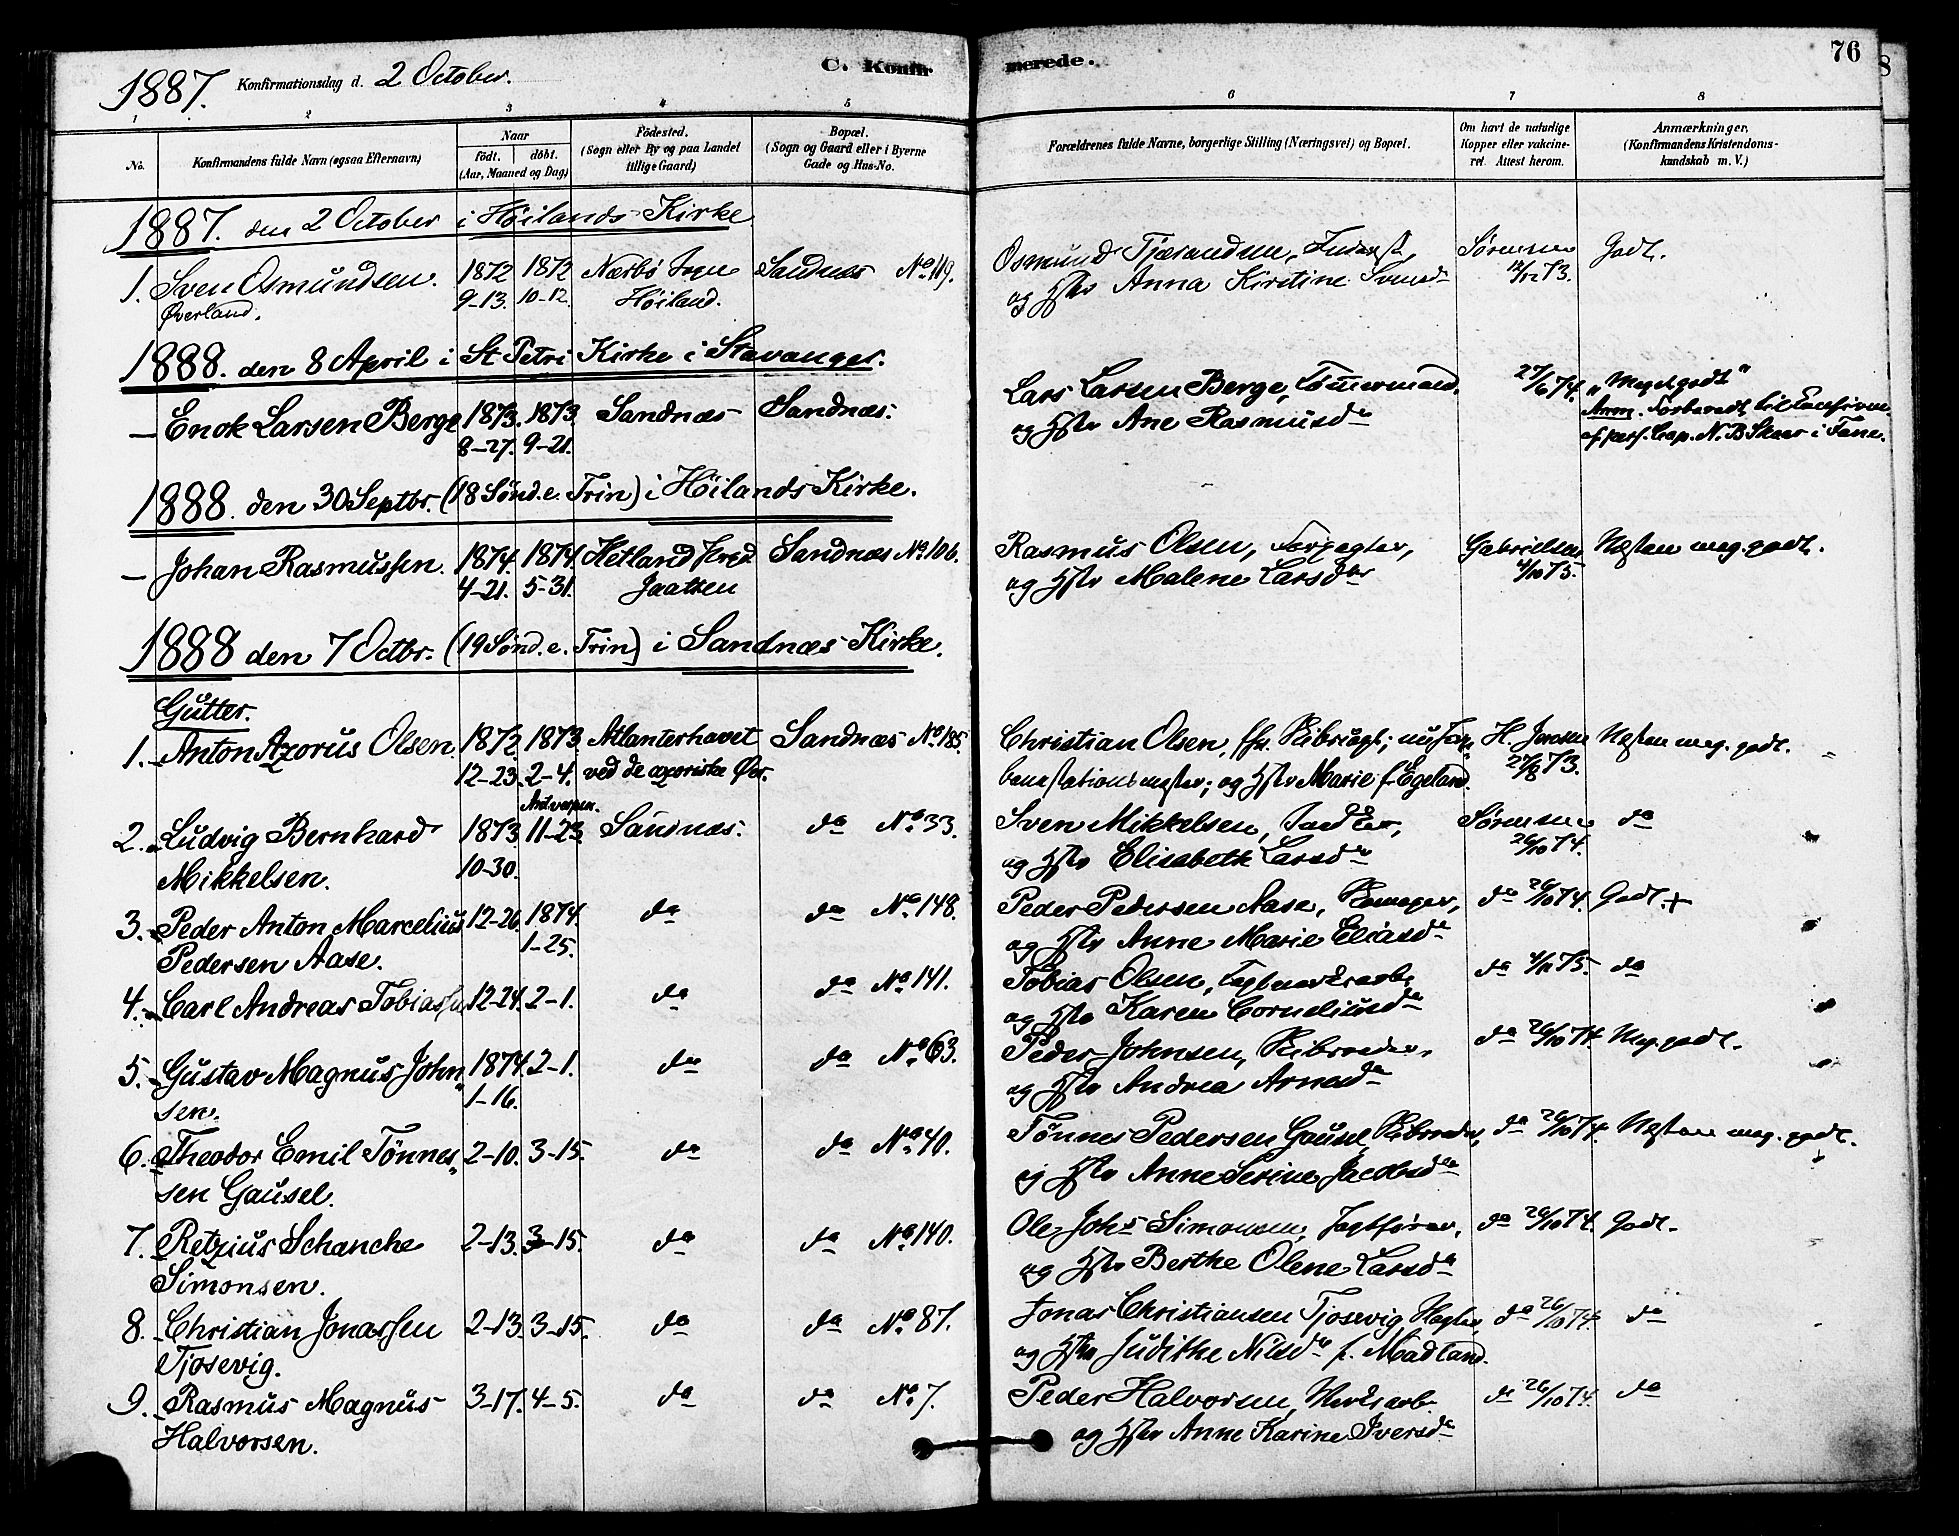 1887. Konfirmationsdag d. 2 October. C. Konfirmerede. 76
8
1 2 3 4 5 6 7 8
No. Konfirmandens fulde Navn (ogsaa Efternavn) Naar födt. döbt. (Aar, Maaned og Dag) Födested. (Sogn eller By og paa Landet tillige Gaard) Bopæl. (Sogn og Gaard eller i Byerne Gade og Hus-No. Forældrenes fulde Navne, borgerlige Stilling (Næringsvei) og Bopæl. Om havt de naturlige Kopper eller vakcineret. Attest herom. Anmærkninger, (Konfirmandens Kristendomskundskab m. V.)
1887. den 2 October i Höilands Kirke
1. Sven Osmundsen. 1872 1872 Nærbö Sogn Sandnæs No 119. Osmund Tjærandsen, Inderst, Sørensen Godt.
Øverland. 9-13. 10-12. Höiland. og Hstr Anna Kirstine Svensd 73.
1888. den 8 April i St Petri Kirke i Stavanger.
– Enok Larsen Berge 1873. 1873. Sandnæs Sandnæs. Lars Larsen Berge, Tömermand, 27/6 74. "Meget godt"
8-27. 9-21. og Hstr Ane Rasmusdr Anm. Forberedt til Confirm. af pers. Cap. N. B Skaar i Fane.
1888. den 30 Septbr. (18 Sønd. e. Trin) i Höilands Kirke.
– Johan Rasmussen. 1874. 1874 Hetland Jaatten Sandnæs No. 106. Rasmus Olsen, Forpagter, Gabrielsen Næsten meg. godt.
4-21. 5-31. og Hstr Malene Larsdr 4/10 75.
1888 den 7 Octbr. (19 Sønd. e. Trin) i Sandnæs Kirke.
Gutter.
1. Anton Azorus Olsen 1872. 1873. Atlanterhavet Sandnæs No. 185. Christian Olsen, fhv. Skibsägt; nu Jern H. Jensen Næsten meg. godt.
12-23. 2-4. ved de azoriske Øer. banestationsmester; og Hstr Marie f Egeland. 27/8 73.
Antverpen.
2. Ludvig Bernhard 1873. 11-23. Sandnæs. do No. 33. Sven Mikkelsen, Sørensen do
Mikkelsen. 10-30. og Hstr Elisabeth Larsdr 26/10 74.
3. Peder Anton Marcelius 12-26. 1874. do do No. 148. Peder Pedersen Aase, Skomager, do 26/10 74. Godt. +
Pedersen Aase. 1-25. og Hstr Anne Marie Eliasdr
4. Carl Andreas Tobiassen 12-24. 2-1. do do No. 141. Tobias Olsen, Teglværksarb. do 75. do
og Hstr Karen Corneliusdr
5. Gustav Magnus John 1874. 2-1. do do No. 63. Peder Johnsen, Skibsreder, do 26/10 74. Meg. godt.
sen. 1-16. og Hstr Andrea Arnesdr
6. Theodor Emil Tönnes 2-10. 3-15. do do No. 40. Tönnes Pedersen Gausel, Skibsreder, do 26/10 74. Næsten meg. godt.
sen Gausel. og Hstr Anne Serine Jacobsdr
7. Retzius Schanche 2-13. 3-15. do do No. 140. Ole Johs Simonsen, Jagtfører, do 26/10 74. Godt.
Simonsen. og Hstr Berthe Olene Larsdr
8. Christian Jonassen 2-13. 3-15. do do No. 87. Jonas Christiansen Tjosevig, do 26/10 74. do
Tjosevig. og Hstr Judithe Nilsdr f. Madland.
9. Rasmus Magnus 3-17. 4-5. do do No. 7. Peder Halvorsen, do 26/10 74. do
Halvorsen. og Hstr Anne Karine Iversdr